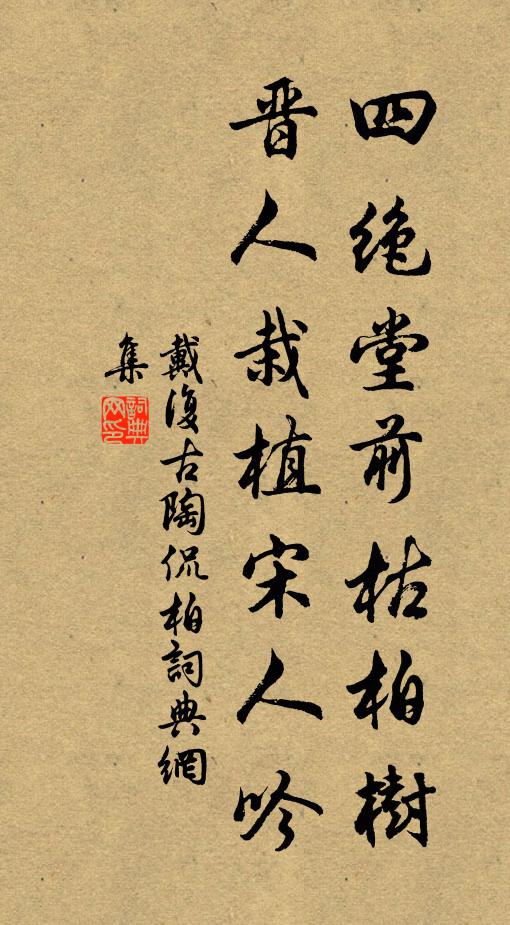 四絕堂前枯柏樹
晋人栽植宋人吟
戴復古陶侃柏詞典網
集
詞典網印